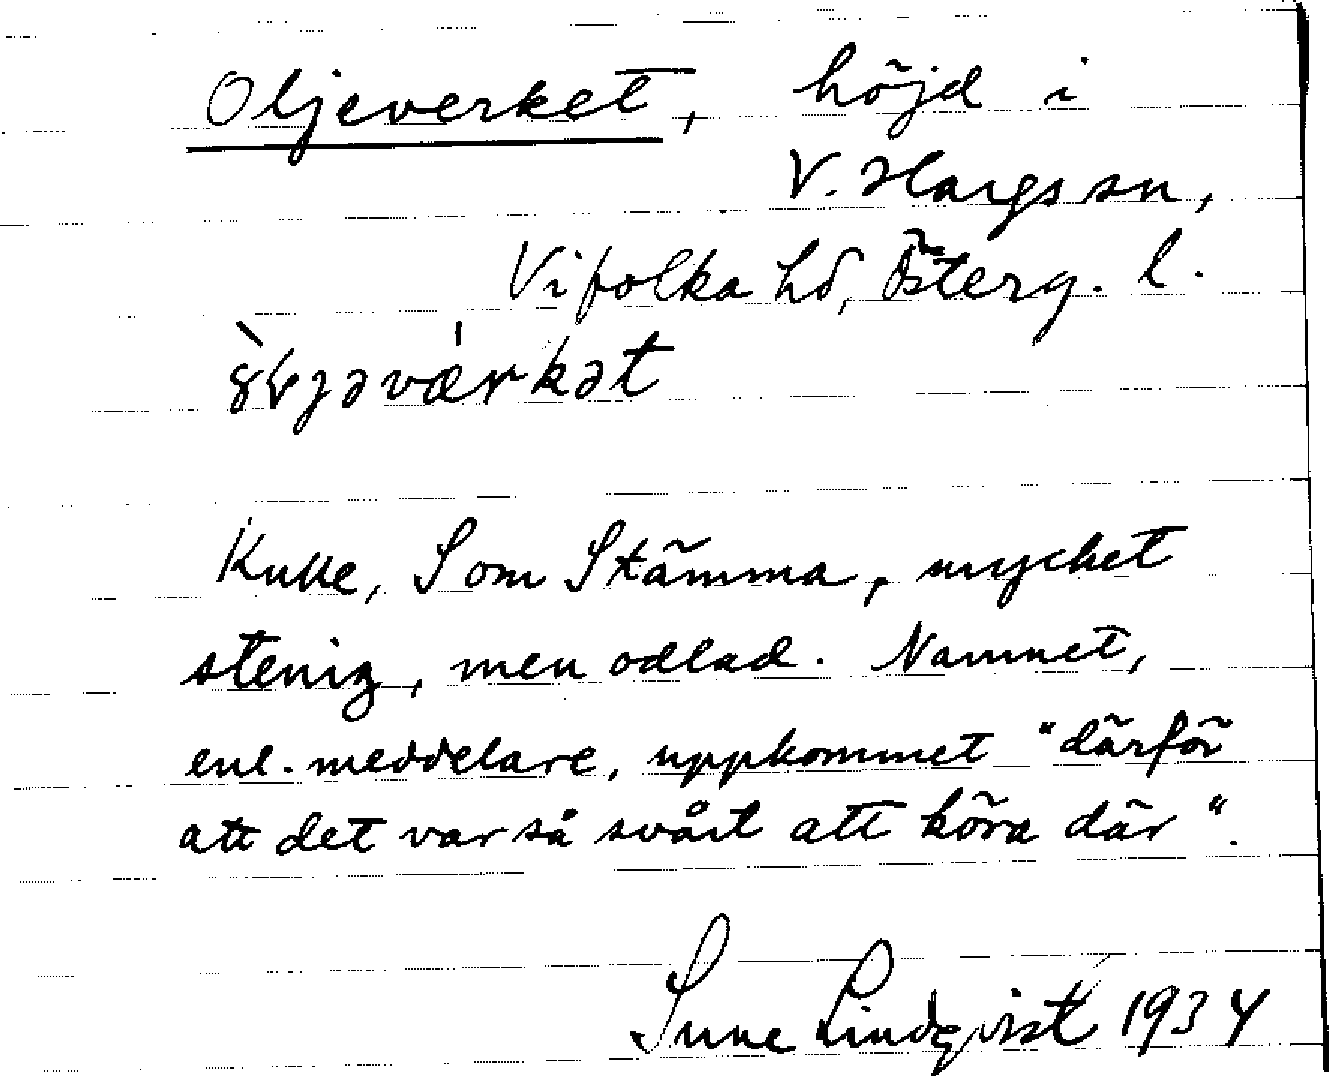 Oljeverket, höjd i
V. Hargs sn,
Vifolka hd, Österg. l.
Kulle, S om Stämma, mycket
stenig, men odlad. Namnet,
enl. meddelare, uppkommet "därför
att det var så svårt att köra där".
Sune Lindqvist 1934